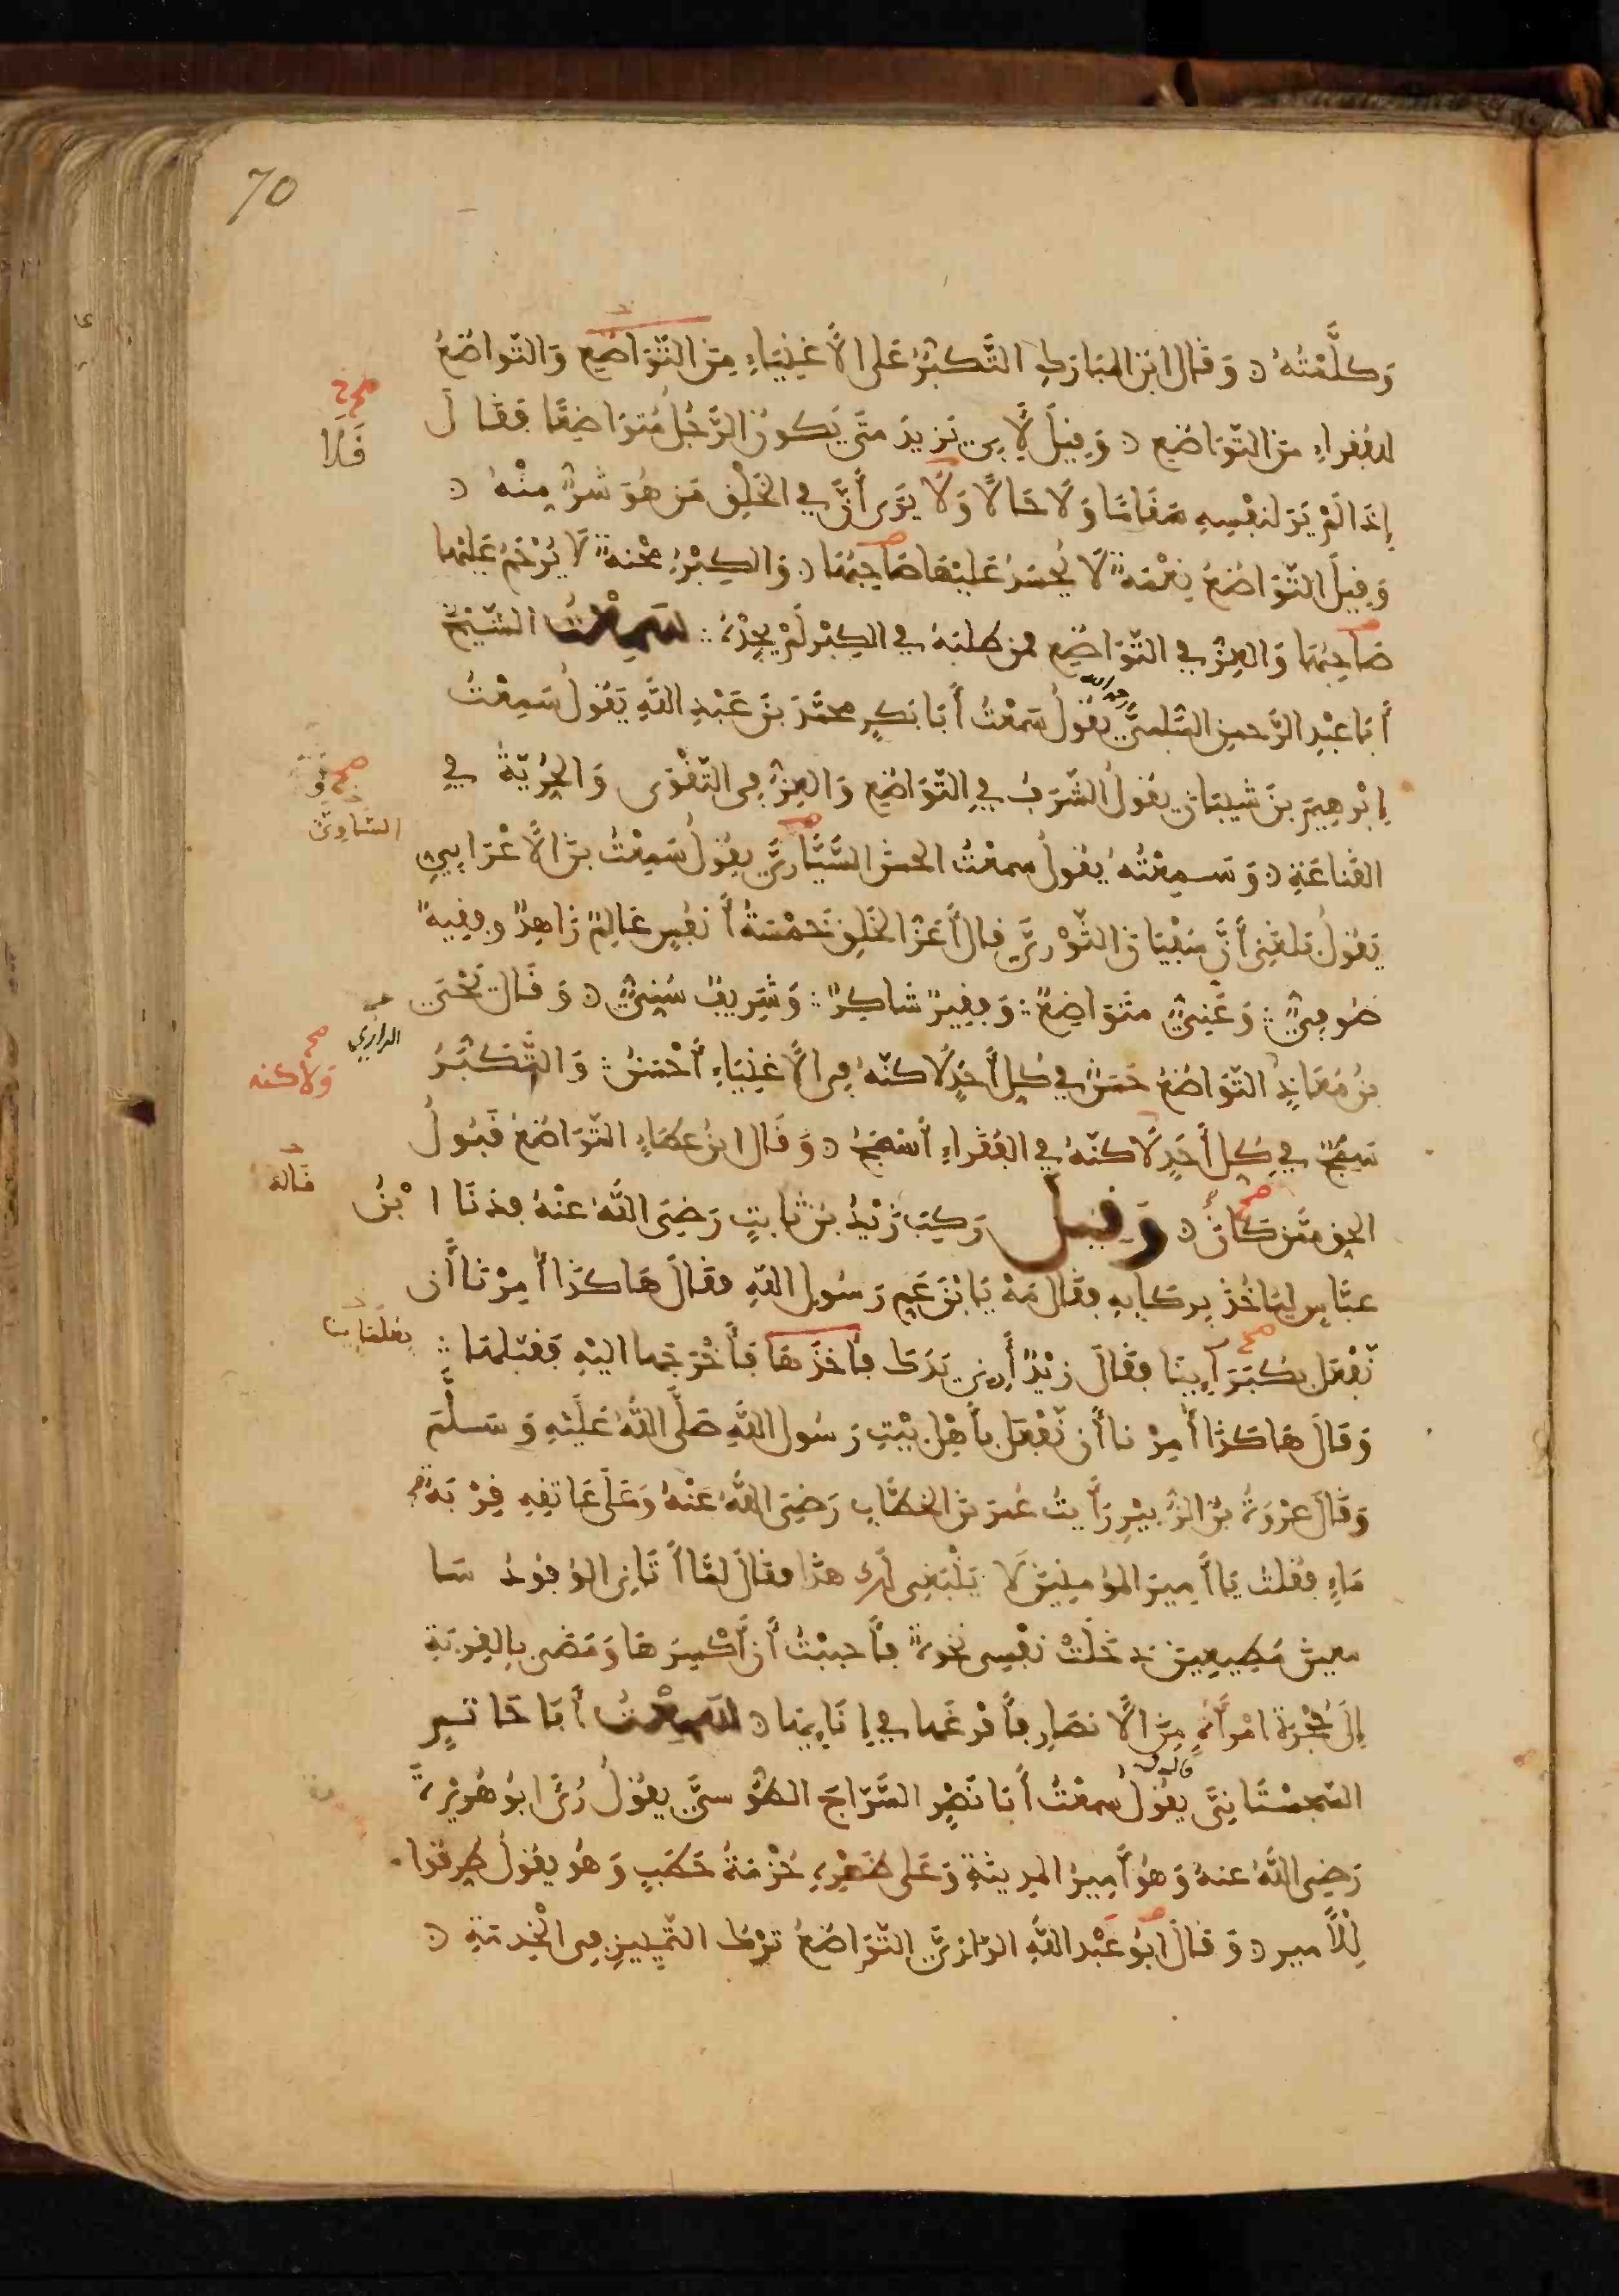 70
وَكَلَّمْتُهُ ؞ وَقَالَ ابْنُ المُبَارَكِ التَّكَبُّرُ عَلى الأَغْنِيَاءِ مِنَ التَّوَاضُعِ وَالتَّوَاضُعُ
للفُقراءِ مِنَ التَّوَاضُعِ ؞ وَقِيلَ لأَبِي يَزِيدَ مَتَى يَكُونُ الرَّجُلُ مُتَوَاضِعًا فَقَالَ
إِذَا لَمْ يَرَ لنَفْسِهِ مَقَامًا وَلَا حَالًا وَلَا يَرَى أَنَّ فِي الخَلْقِ مَن هُوَ شَرٌّ مِنْهُ ؞
فَلَا
وَقِيلَ التَّوَاضُعُ نِعْمَةٌ لَا يُحْسَدُ عَلَيْهَا صَاحِبُهَا ؞ وَالكِبْرُ مِحْنَةٌ لَا يُرْحَمُ عَلَيْهَا
صَاحِبُهَا وَالعِزُّ فِي التَّوَاضُعِ فمن طلبَهُ فِي الكِبْرِ لَمْ يَجِدْهُ ؞ سَمِعْتُ الشَّيْخَ
أَبَا عَبْدِ الرَّحمنِ السُّلَمِيَّ رحمه الله يَقُولُ سَمِعْتُ أَبَا بَكرٍ محمَّدَ بنَ عَبْدِ اللَّهِ يَقُولُ سَمِعْتُ
إِبْرهِيمَ بنَ شَيْبَانَ يَقُولُ الشَّرَفُ فِي التَّوَاضُعِ وَالعِزُّ فِي التَّقْوَى وَالحُرِّيَّةُ فِي
القَنَاعَةِ ؞ وَسَمِعْتُهُ يَقُولُ سمعْتُ الحسنَ السَّيَّارِيَّ يَقُولُ سَمِعْتُ بنَ الأَعْرَابِيِّ
الساوِيَّ
يَقُولُ بَلَغَنِي أَنَّ سُفْيَانَ الثَّوْرِيَّ قالَ أَعَزُّ الخَلْقِ خَمْسَةُ أَنفُسٍ عَالِمٌ زَاهِدٌ وفقِيهٌ
صُوفِيٌّ ؞ وَغَنِيٌّ مُتَوَاضِعٌ ؞ وَفَقِيرٌ شَاكِرٌ ؞ وَشَرِيفٌ سُنِّيٌّ ؞ وَقَالَ يَحْيَى
الرازي
بنُ مُعَاذٍ التَّوَاضُعُ حَسَنٌ فِي كلِّ أَحَدٍ لَاكنَّهُ فِي الأَغْنِيَاءِ أَحْسَنُ ؞ وَالتَّكَبُّرُ
وَلَاكنه
سَمِجٌ فِي كلِّ أَحَدٍ لَاكنَّهُ فِي الفُقَراءِ أَسْمَجُ ؞ وَقَالَ ابنُ عَطَاءٍ التَّوَاضُعُ قَبُولُ
قَالهُ
الحقِّ مِمَّن كَانَ ؞ وَقِيلَ رَكِبَ زَيْدُ بنُ ثَابتٍ رَضِيَ اللَّهُ عَنْهُ فدَنَا ابْنُ
عبَّاسٍ ليَأخُذَ بِرِكَابِهِ فقَالَ مَهْ يَا بْنَ عَمِّ رَسُولِ اللَّهِ فقَالَ هَاكَذَا أُمِرْنَا أَن
نَفْعَلَ بكُبَرَائِنَا فقَالَ زَيْدٌ أَرِنِي يَدَكَ فَأَخَذَهَا فَأَخْرَجَهَا إِلَيْهِ فَقَبَّلَهَا ؞
بعُلَمَائِنا
وَقَالَ هَاكَذَا أُمِرْنا أَن نَفْعَلَ بِأَهْلِ بَيْتِ رَسُولِ اللَّهِ صَلَّى اللَّهُ عَلَيْهِ وَسَلَّمَ
وَقَالَ عُرْوَةُ بنُ الزُّبَيْرِ رَأَيتُ عُمَرَ بنَ الخطَّابِ رَضِيَ اللَّهُ عَنْهُ وَعَلَى عَاتِقِهِ قِرْبَةُ
مَاءٍ فقلت يَا أَمِيرَ المؤمِنِينَ لَا يَنْبَغِي لَكَ هذَا فقَالَ لمَّا أَتَانِي الوُفُودُ سَا
معِينَ مُطِيعِينَ دَخَلَتْ نَفْسِي نخوةٌ فَأَحببْتُ أَنْ أَكْسِرَهَا وَمَضَى بِالقِرْبَةِ
إِلَى حُجْرَةِ امْرَأَةٍ مِنَ الأَنصَارِ فَأَفْرَغَهَا فِي إِنَائِهَا ؞ سَمِعْتُ أَبَا حَاتمٍ
السِّجِسْتَانِيَّ يَقُولُ سمعْتُ أَبَا نَصْرٍ السَّرَّاجَ الطُّوسيَّ يَقُولُ رُئِيَ أَبُو هُرَيْرَةَ
رَضِيَ اللَّهُ عنهُ وَهُوَ أَمِيرُ المدِينَةِ وَعَلَى ظَهْرِهِ حُزْمَةُ حَطَبٍ وَهُوَ يَقُولُ طَرِّقُوا
لِلْأَميرِ ؞ وَقَالَ أَبُو عَبْدِ اللَّهِ الرَّازِيُّ التَّوَاضُعُ تَرْكُ التَّمْيِيزِ فِي الخِدْمَةِ ؞